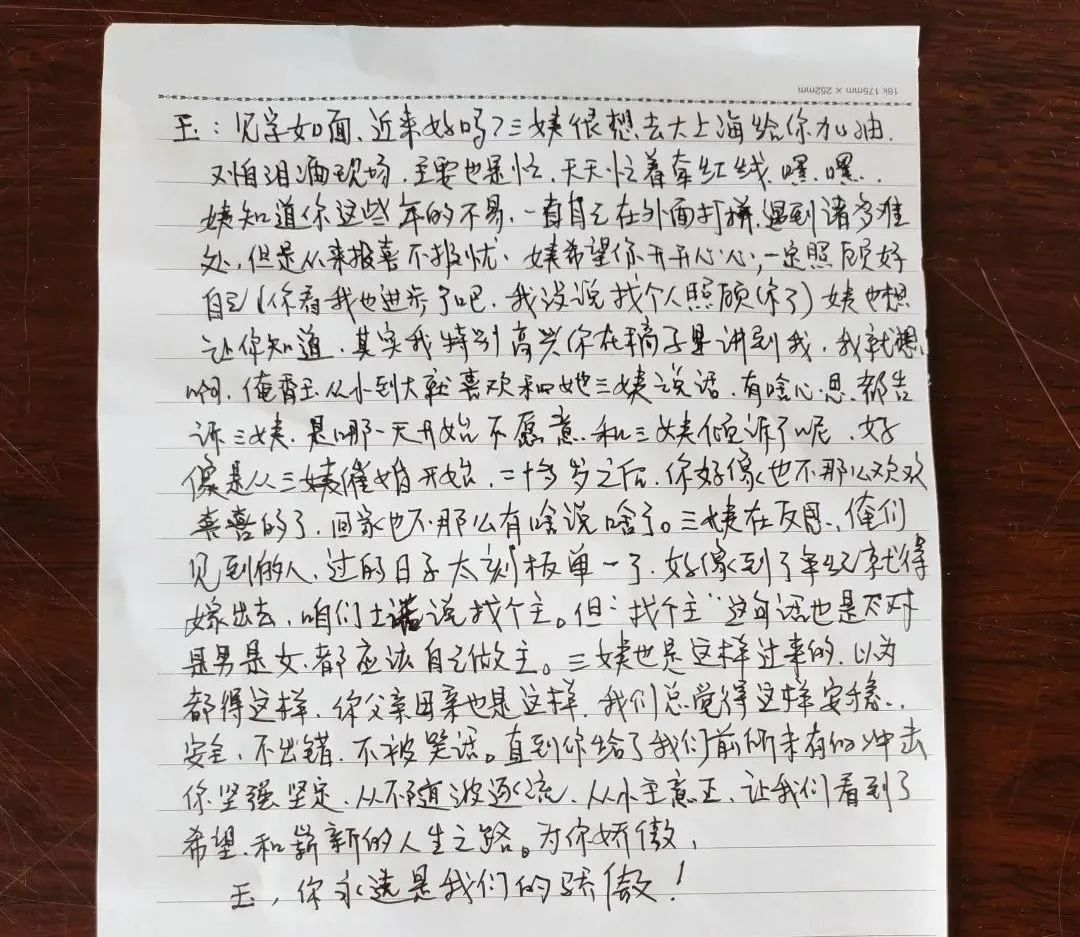 18k 175mm × 252mm
玉：见字如面、近来好吗？三姨很想去大上海给你加油.
又怕泪洒现场．主要也是忙．天天忙着牵红线．嘿．嘿..
姨知道你这些年的不易．一直自己在外面打拼．遇到诸多难
处，但是从来报喜不报忧．姨希望你开开心心，一定照顾好
自己（你看我也进步了吧．我没说找个人照顾你了）姨也想
让你知道．其实我特别高兴你在稿子里讲到我．我就想．
啊．俺香玉从小到大就喜欢和她三姨说话．有啥心思．都告
诉三姨．是哪一天开始不愿意．和三姨倾诉了呢．好
像是从三姨催婚开始．二十多岁之后．你好像也不那么欢欢
喜喜的了．回家也不那么有啥说啥了。三姨在反思..俺们
见到的人．过的日子太刻板单一了．好像到了年纪就得
嫁出去．咱们土话说找个主。但“找个主”这句话也是不对
是男是女．都应该自己做主。三姨也是这样过来的．以为
都得这样．你父亲母亲也是这样．我们总觉得这样安稳..
安全．不出错．不被笑话。直到你给了我们前所未有的冲击
你坚强坚定．从不随波逐流．从小主意正．让我们看到了
希望．和崭新的人生之路。为你骄傲，
玉，你永远是我们的骄傲！